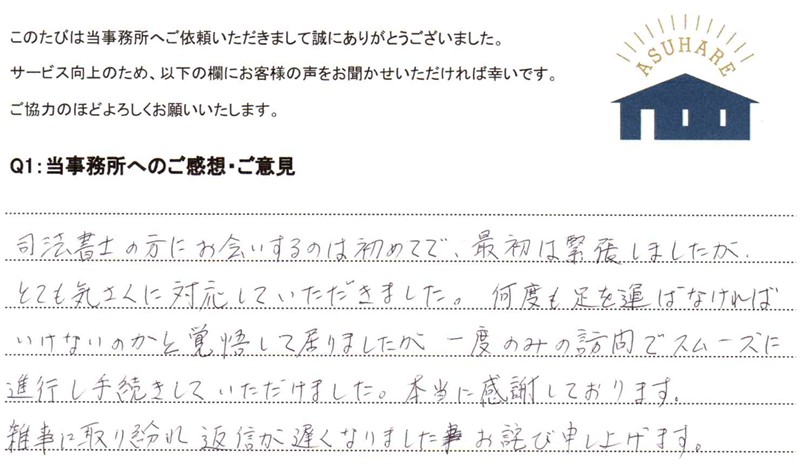 このたびは当事務所へご依頼いただきまして誠にありがとうございました。
サービス向上のため、以下の欄にお客様の声をお聞かせいただければ幸いです。
ご協力のほどよろしくお願いいたします。
ASUHARE
Q1:当事務所へのご感想・ご意見
司法書士の方にお会いするのは初めてで、最初は緊張しましたが、
とても気さくに対応していただきました。何度も足を運ばなければ
いけないのかと覚悟して居りましたが 一度のみの訪問でスムーズに
進行し手続きしていただけました。本当に感謝しております。
雑事に取り紛れ 返信が遅くなりました事 お詫び申し上げます。